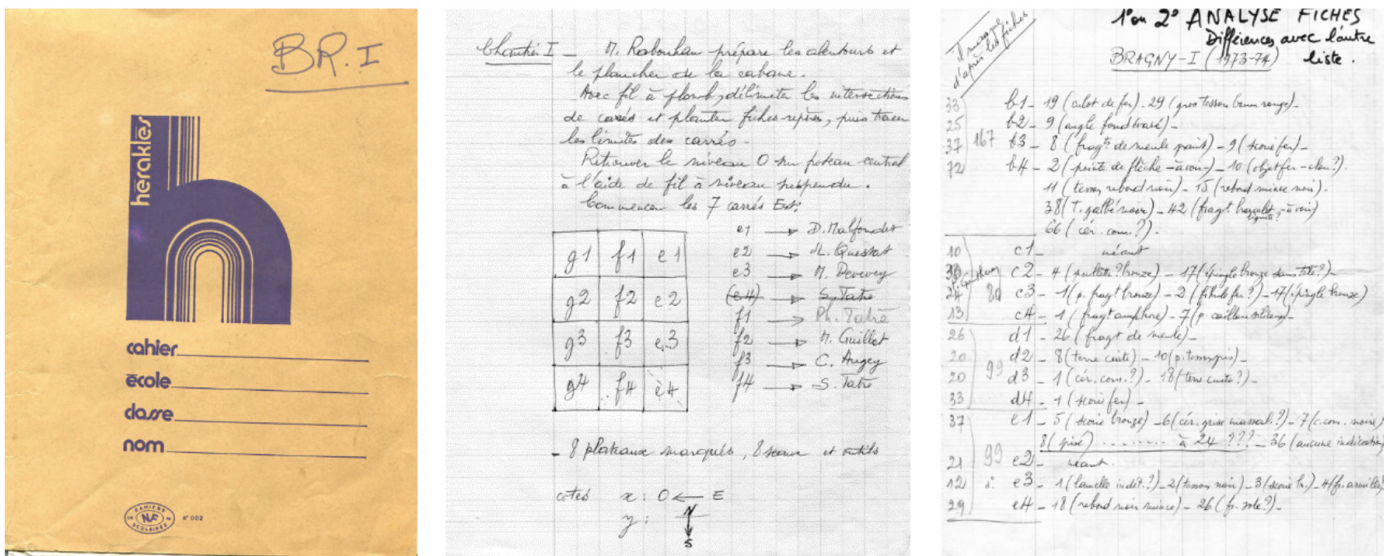 BR.I
herakles
cahier
école
classe
nom
CAHIERS
NF
SCOLAIRES
n° 002
Chantier I _ M. Rabouhan prépare les alentours et
le plancher de la cabane.
Avec fil à plomb, délimiter les intersections
de carrés et planter fiches-repères, puis tracer
les limites des carrés.
Retrouver le niveau 0 sur poteau central
à l'aide de fil à niveau suspendu.
Commencer les 7 carrés Est:
g1 f1 e1
g2 f2 e2
g3 f3 e3
g4 f4 e4
e1 → D. Maljournet
e2 →
e3 → M. Devevey
(e4) → S. Tatre
f1 → Ph. Tatre
f2 → M. Guillot
f3 → C. Augey
f4 → S. Tatre
- 8 plateaux marqués, 8 seaux et outils
cotes x : O ← E
y : N
S
Il manque
d'après les fiches
1° ou 2° ANALYSE FICHES
Différences avec l'autre
liste.
BRAGNY-I (1973-74)
33 b1 - 19 (culot de fer) - 29 (gros tesson brun rouge) -
25 b2 - 9 (angle fond évasé) -
37 167 b3 - 8 (fragt de meule granit) - 9 (scorie fer) -
72 b4 - 2 (pointe de flèche - à voir) - 10 (objet fer - clou?).
11 (tesson rebord noir) - 15 (rebord mince noir).
38 (T. galbé noir) - 42 (fragt bracelet, à voir)
66 (cér. com.?).
10 c1 néant
80 c2 - 4 (bronze) - 17 (épingle bronze sans tête?) -
24 c3 - 1 (p. fragt bronze) - 2 (fibule fer?) - 17 (épingle bronze)
13 c4 - 1 (fragt amphore) - 7 (p. caillou siliceux) -
26 d1 - 26 (fragt de meule) -
20 d2 - 8 (terre cuite) - 10 (p. tesson gris) -
20 99 d3 - 1 (cér. com.?) - 18 (terre cuite?) -
33 d4 - 1 (scorie fer) -
37 e1 - 5 (scorie bronze) - 6 (cér. grise?) - 7 (c. com. noire)
8 (pisé) .......... à 24 ??? - 36 (aucune indication)
21 99 e2 - néant.
12 e3 - 1 (lamelle indét.?) - 2 (tesson noir) - 3 (scorie br.) - 4
29 e4 - 18 (rebord noir mince) - 26